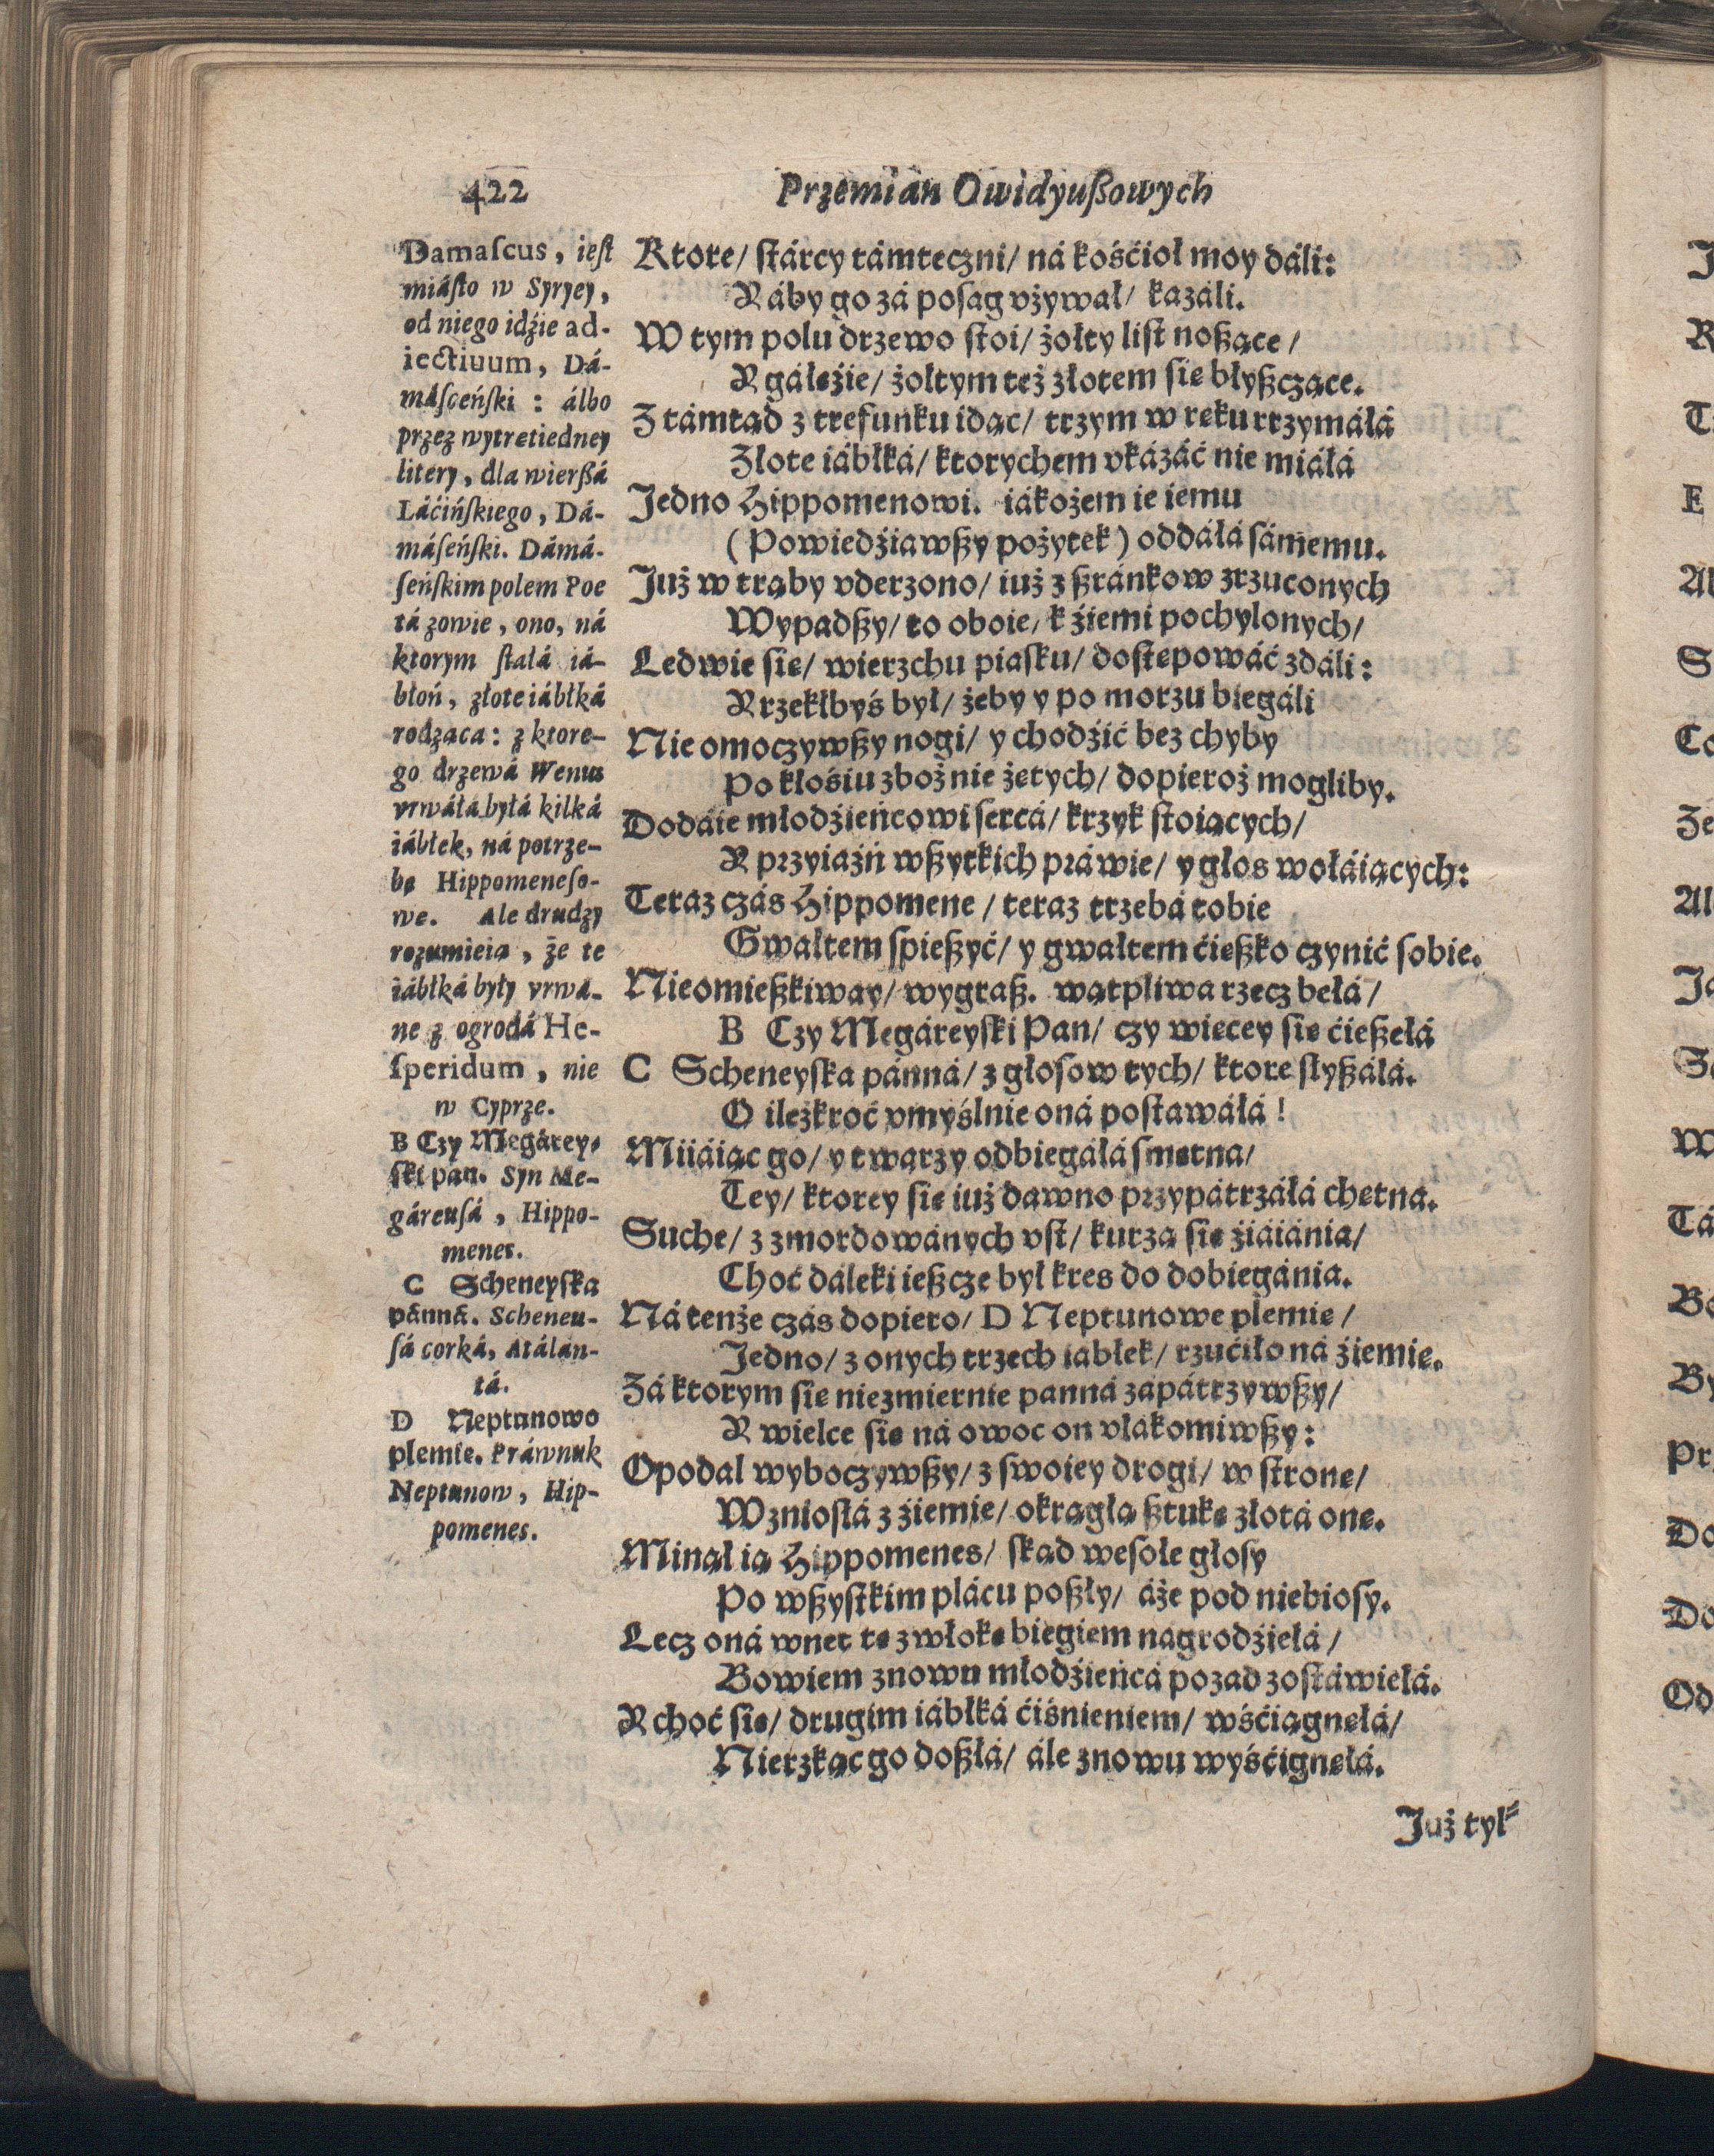 422
Przemian Owidyußowych
Damaſcus, ieſt
miáſto w Syryey,
od niego idźie ad-
iectiuum, Dá-
máſceńſki : álbo
przez wytretiedney
litery, dla wierßá
Láćińſkiego, Dá-
máſeńſki. Dámá-
ſeńſkim polem Poe
tá zowie, ono, ná
ktorym ſtałá iá-
błoń, złote iábłká
rodząca: z ktore-
go drzewá Wenus
vrwáłá byłá kilká
iábłek, ná potrze-
bę Hippomeneſo-
we. Ale drudzy
rozumieią, że te
iábłká były vrwá-
ne z ogrodá He-
ſperidum, nie
w Cyprze.
B Czy Megárey-
ſki pan. Syn Me-
gáreuſá, Hippo-
menes.
C Scheneyſka
pánná. Scheneu-
ſá corká, Atálán-
tá.
D Neptunowo
plemie. Práwnuk
Neptunow, Hip-
pomenes.
Ktore/ ſtárcy támteczni/ ná kośćioł moy dáli:
Y áby go zá poſag vżywał/ kazáli.
W tym polu drzewo ſtoi/ żołty liſt noßące/
Y gáłęźie/ żołtym też złotem ſie błyßczące.
Z támtąd z trefunku idąc/ trzym w ręku trzymáłá
Złote iábłká/ ktorychem vkázáć nie miáłá
Jedno Hippomenowi. iákożem ie iemu
(Powiedźiawßy pożytek) oddáłá ſámemu.
Już w trąby vderzono/ iuż z ßránkow zrzuconych
Wypadßy/ to oboie/ k źiemi pochylonych/
Ledwie ſie/ wierzchu piaſku/ doſtępowáć zdáli:
Y rzekłbyś był/ żeby y po morzu biegáli
Nie omoczywßy nogi/ y chodźić bez chyby
Po kłośiu zboż nie żętych/ dopieroż mogliby.
Dodáie młodźieńcowi ſercá/ krzyk ſtoiących/
Y przyiaźń wßytkich práwie/ y głos wołáiących:
Teraz czás Hippomene/ teraz trzebá tobie
Gwałtem ſpießyć/ y gwałtem ćießko czynić ſobie.
Nieomießkiway/ wygraß. wątpliwa rzecz bełá/
B Czy Megáreyſki Pan/ czy więcey ſię ćießełá
C Scheneyſka pánná/ z głoſow tych/ ktore ſłyßáłá.
O ileżkroć vmyślnie oná poſtawáłá!
Miiáiąc go/ y twarzy odbiegáłá ſmętna/
Tey/ ktorey ſię iuż dawno przypátrzáłá chętna.
Suche/ z zmordowánych vſt/ kurzą ſię źiáiánia/
Choć dáleki ießcze był kres do dobiegánia.
Ná tenże czás dopiero/ D Neptunowe plemie/
Jedno/ z onych trzech iábłek/ rzućiło ná źiemię.
Zá ktorym ſię niezmiernie panná zápátrzywßy/
Y wielce ſię ná owoc on vłákomiwßy:
Opodal wyboczywßy/ z ſwoiey drogi/ w ſtronę/
Wznioſłá z źiemie/ okrągłą ßtukę złotá onę.
Minął ią Hippomenes/ ſkąd weſołe głoſy
Po wßyſtkim plácu poßły/ áże pod niebioſy.
Lecz oná wnet tę zwłokę biegiem nágrodźiełá/
Bowiem znowu młodźieńcá pozad zoſtáwiełá.
Y choć ſię/ drugim iábłká ćiśnieniem/ wśćiągnełá/
Nierzkąc go doßłá/ ále znowu wyśćignełá.
Już tyl-